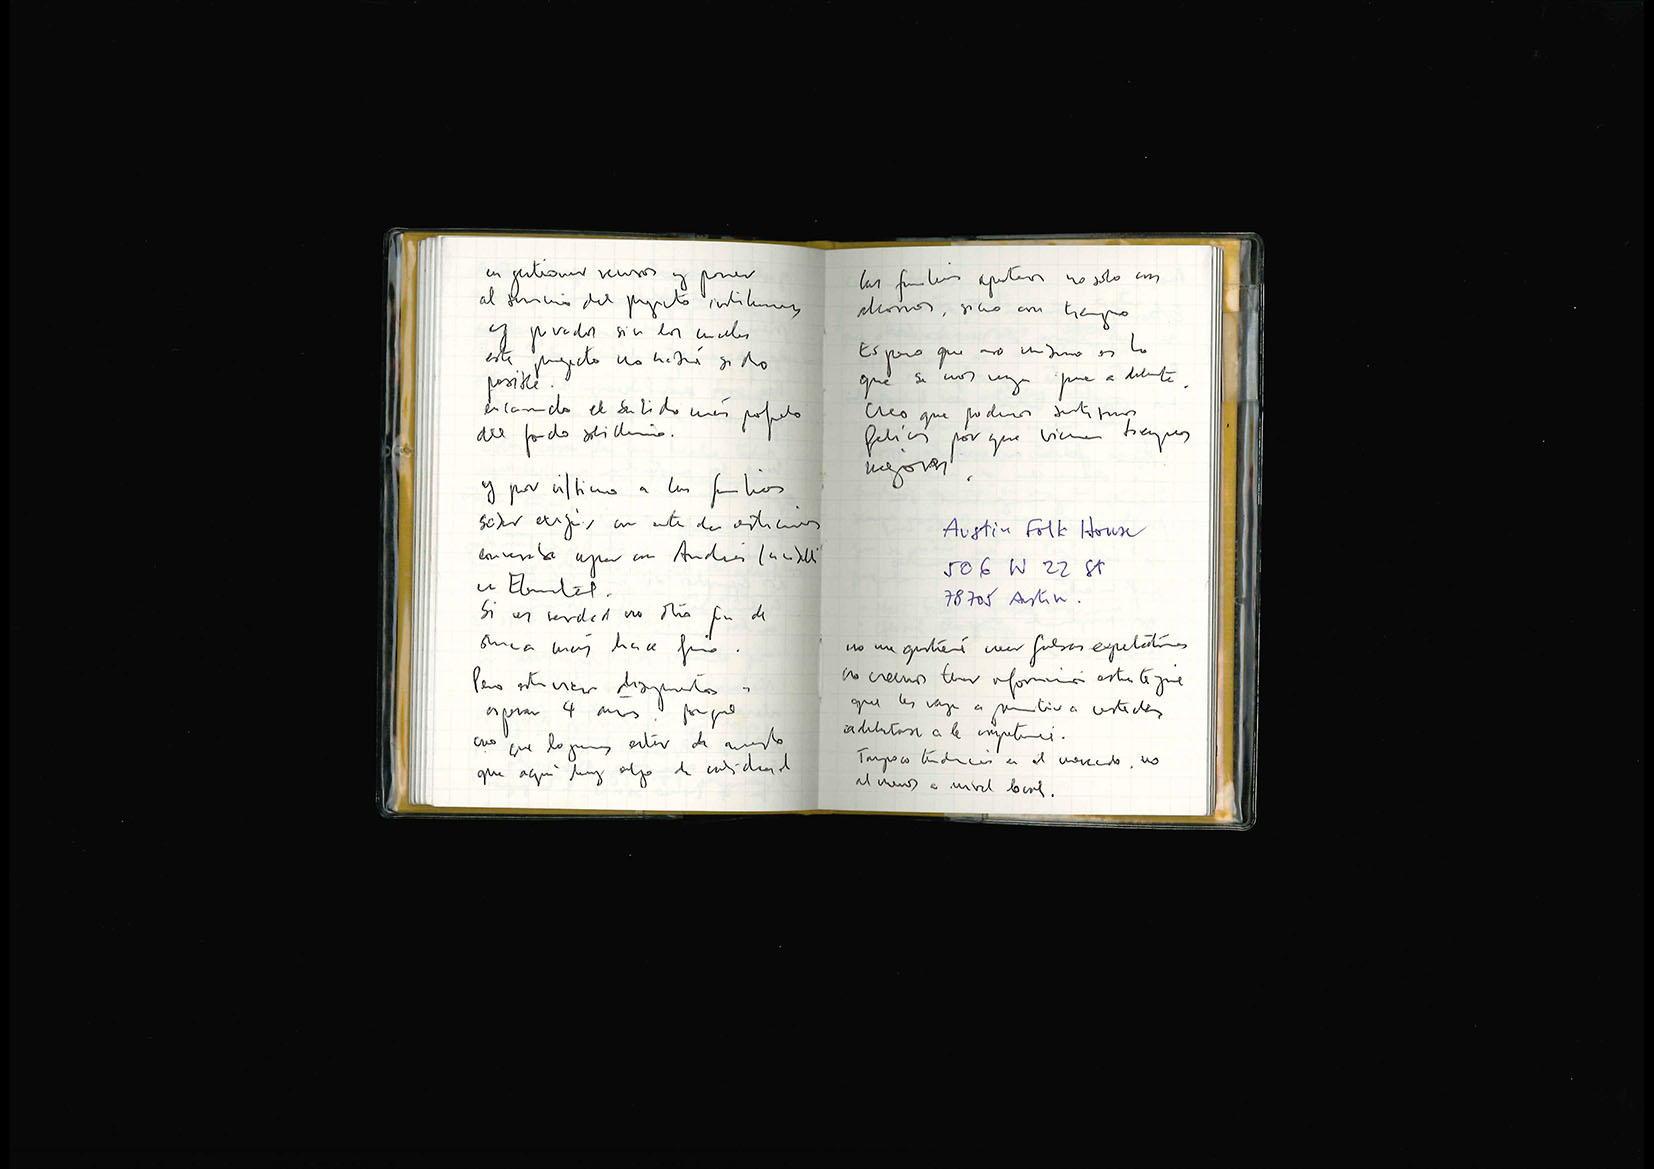 en gestionar recursos y poner
al servicio del proyecto
y privados sin los cuales
este proyecto no habría sido
posible.
encarnando el sentido más profundo
del fondo solidario.
y por último a las familias
saber exigir con
conversaba ayer con Andrés
en Elemental.
Si es verdad no
nunca más hace
Pero
esperar 4 años. porque
creo que logramos estar de acuerdo
que aquí hay algo de calidad
las familias aportaron no sólo con
ahorros, sino con tiempo
Espero que eso mismo es lo
que se nos venga para adelante.
Creo que podemos sentirnos
felices porque vienen tiempos
mejores.
Austin Folk House
506 W 22 St
78705 Austin.
no me gustaría crear falsas expectativas
no creemos tener información estratégica
que les vaya a permitir a ustedes
adelantarse a la competencia.
Tampoco tendencias en el mercado, no
al menos a nivel local.